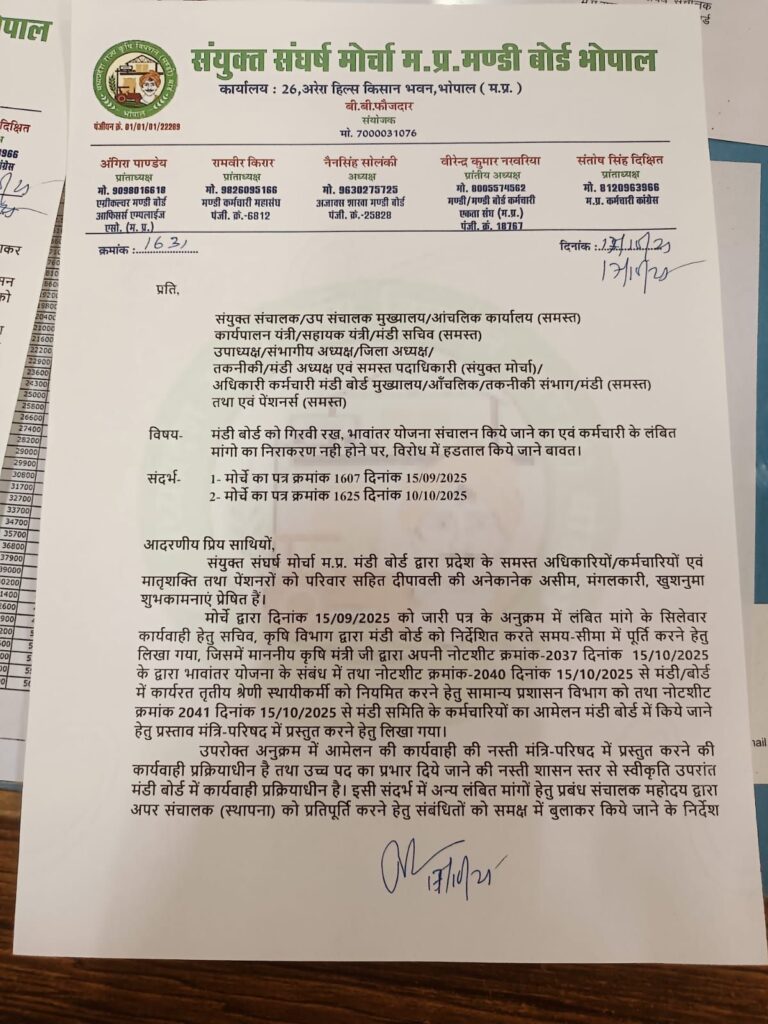 संयुक्त संघर्ष मोर्चा म.प्र.मण्डी बोर्ड भोपाल
कार्यालय : 26,अरेरा हिल्स किसान भवन,भोपाल ( म.प्र. )
बी.बी.फौजदार
संयोजक
मो. 7000031076
पंजीयन क्रं. 01/01/01/22269
अंगिरा पाण्डेय
प्रांताध्यक्ष
मो. 9098016618
एग्रीकल्चर मण्डी बोर्ड
आफिसर्स एम्पलाईज
एसो. (म. प्र.)
रामवीर किरार
प्रांताध्यक्ष
मो. 9826095166
मण्डी कर्मचारी महासंघ
पंजी. क्रं.-6812
नैनसिंह सोलंकी
अध्यक्ष
मो. 9630275725
अजाक्स शाखा मण्डी बोर्ड
पंजी. क्रं.-25828
वीरेन्द्र कुमार नरवरिया
प्रांतीय अध्यक्ष
मो. 8005574562
मण्डी/मण्डी बोर्ड कर्मचारी
एकता संघ (म.प्र.)
पंजी. क्रं. 18767
संतोष सिंह दिक्षित
प्रांताध्यक्ष
मो. 8120963966
म.प्र. कर्मचारी कांग्रेस
क्रमांक : 1631
दिनांक : 17/10/25
17/10/25
प्रति,
संयुक्त संचालक/उप संचालक मुख्यालय/आंचलिक कार्यालय (समस्त)
कार्यपालन यंत्री/सहायक यंत्री/मंडी सचिव (समस्त)
उपाध्यक्ष/संभागीय अध्यक्ष/जिला अध्यक्ष/
तकनीकी/मंडी अध्यक्ष एवं समस्त पदाधिकारी (संयुक्त मोर्चा)/
अधिकारी कर्मचारी मंडी बोर्ड मुख्यालय/आँचलिक/तकनीकी संभाग/मंडी (समस्त)
तथा एवं पेंशनर्स (समस्त)
विषय- मंडी बोर्ड को गिरवी रख, भावांतर योजना संचालन किये जाने का एवं कर्मचारी के लंबित
मांगो का निराकरण नही होने पर, विरोध में हडताल किये जाने बावत।
संदर्भ- 1- मोर्चे का पत्र क्रमांक 1607 दिनांक 15/09/2025
2- मोर्चे का पत्र क्रमांक 1625 दिनांक 10/10/2025
आदरणीय प्रिय साथियों,
संयुक्त संघर्ष मोर्चा म.प्र. मंडी बोर्ड द्वारा प्रदेश के समस्त अधिकारियों/कर्मचारियों एवं
मातृशक्ति तथा पेंशनरों को परिवार सहित दीपावली की अनेकानेक असीम, मंगलकारी, खुशनुमा
शुभकामनाएं प्रेषित हैं।
मोर्चे द्वारा दिनांक 15/09/2025 को जारी पत्र के अनुक्रम में लंबित मांगे के सिलेवार
कार्यवाही हेतु सचिव, कृषि विभाग द्वारा मंडी बोर्ड को निर्देशित करते समय-सीमा में पूर्ति करने हेतु
लिखा गया, जिसमें माननीय कृषि मंत्री जी द्वारा अपनी नोटशीट क्रमांक-2037 दिनांक 15/10/2025
के द्वारा भावांतर योजना के संबंध में तथा नोटशीट क्रमांक-2040 दिनांक 15/10/2025 से मंडी/बोर्ड
में कार्यरत तृतीय श्रेणी स्थायीकर्मी को नियमित करने हेतु सामान्य प्रशासन विभाग को तथा नोटशीट
क्रमांक 2041 दिनांक 15/10/2025 से मंडी समिति के कर्मचारियों का आमेलन मंडी बोर्ड में किये जाने
हेतु प्रस्ताव मंत्रि-परिषद में प्रस्तुत करने हेतु लिखा गया।
उपरोक्त अनुक्रम में आमेलन की कार्यवाही की नस्ती मंत्रि-परिषद में प्रस्तुत करने की
कार्यवाही प्रक्रियाधीन है तथा उच्च पद का प्रभार दिये जाने की नस्ती शासन स्तर से स्वीकृति उपरांत
मंडी बोर्ड में कार्यवाही प्रक्रियाधीन है। इसी संदर्भ में अन्य लंबित मांगों हेतु प्रबंध संचालक महोदय द्वारा
अपर संचालक (स्थापना) को प्रतिपूर्ति करने हेतु संबंधितों को समक्ष में बुलाकर किये जाने के निर्देश
17/10/25